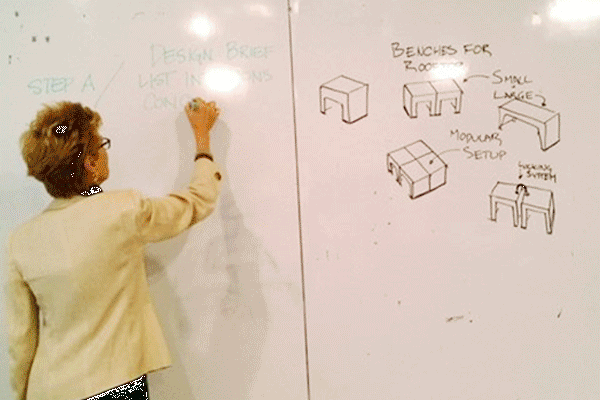 STEP A
DESIGN BRIEF
LIST IN
BENCHES FOR
SMALL
LARGE
MODULAR
SETUP
LOCKING
SYSTEM